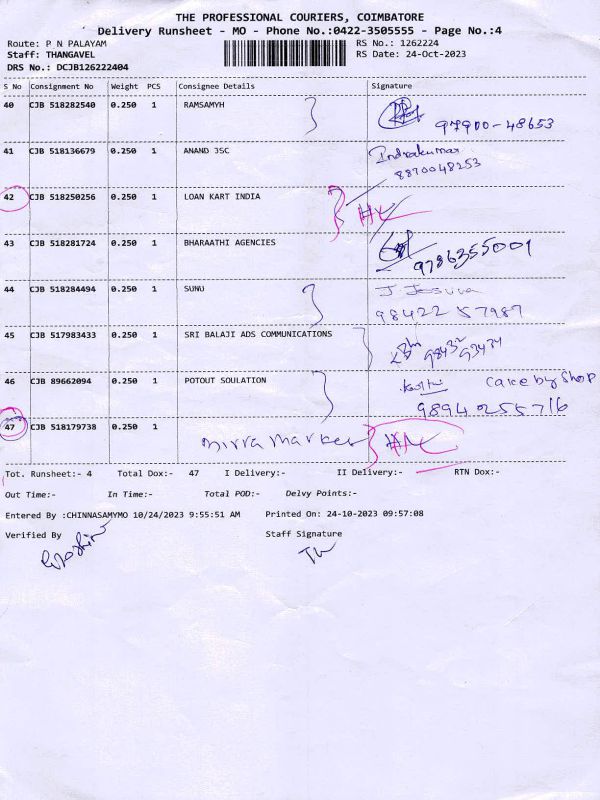 THE PROFESSIONAL COURIERS, COIMBATORE
Delivery Runsheet - MO - Phone No.:0422-3505555 - Page No.:4
Route: P N PALAYAM RS No.: 1262224
Staff: THANGAVEL RS Date: 24-Oct-2023
DRS No.: DCJB126222404
S No Consignment No Weight PCS Consignee Details Signature
40 CJB 518282540 0.250 1 RAMSAMYH
97900-48653
41 CJB 518136679 0.250 1 ANAND JSC Indrakumar
8870048253
42 CJB 518250256 0.250 1 LOAN KART INDIA
43 CJB 518281724 0.250 1 BHARAATHI AGENCIES
9786355001
44 CJB 518284494 0.250 1 SUNU J Jesuva
98422 57987
45 CJB 517983433 0.250 1 SRI BALAJI ADS COMMUNICATIONS
46 CJB 89662094 0.250 1 POTOUT SOULATION Cake by Shop
9894255716
47 CJB 518179738 0.250 1
Tot. Runsheet:- 4 Total Dox:- 47 I Delivery:- II Delivery:- RTN Dox:-
Out Time:- In Time:- Total POD:- Delvy Points:-
Entered By :CHINNASAMYMO 10/24/2023 9:55:51 AM Printed On: 24-10-2023 09:57:08
Verified By Staff Signature